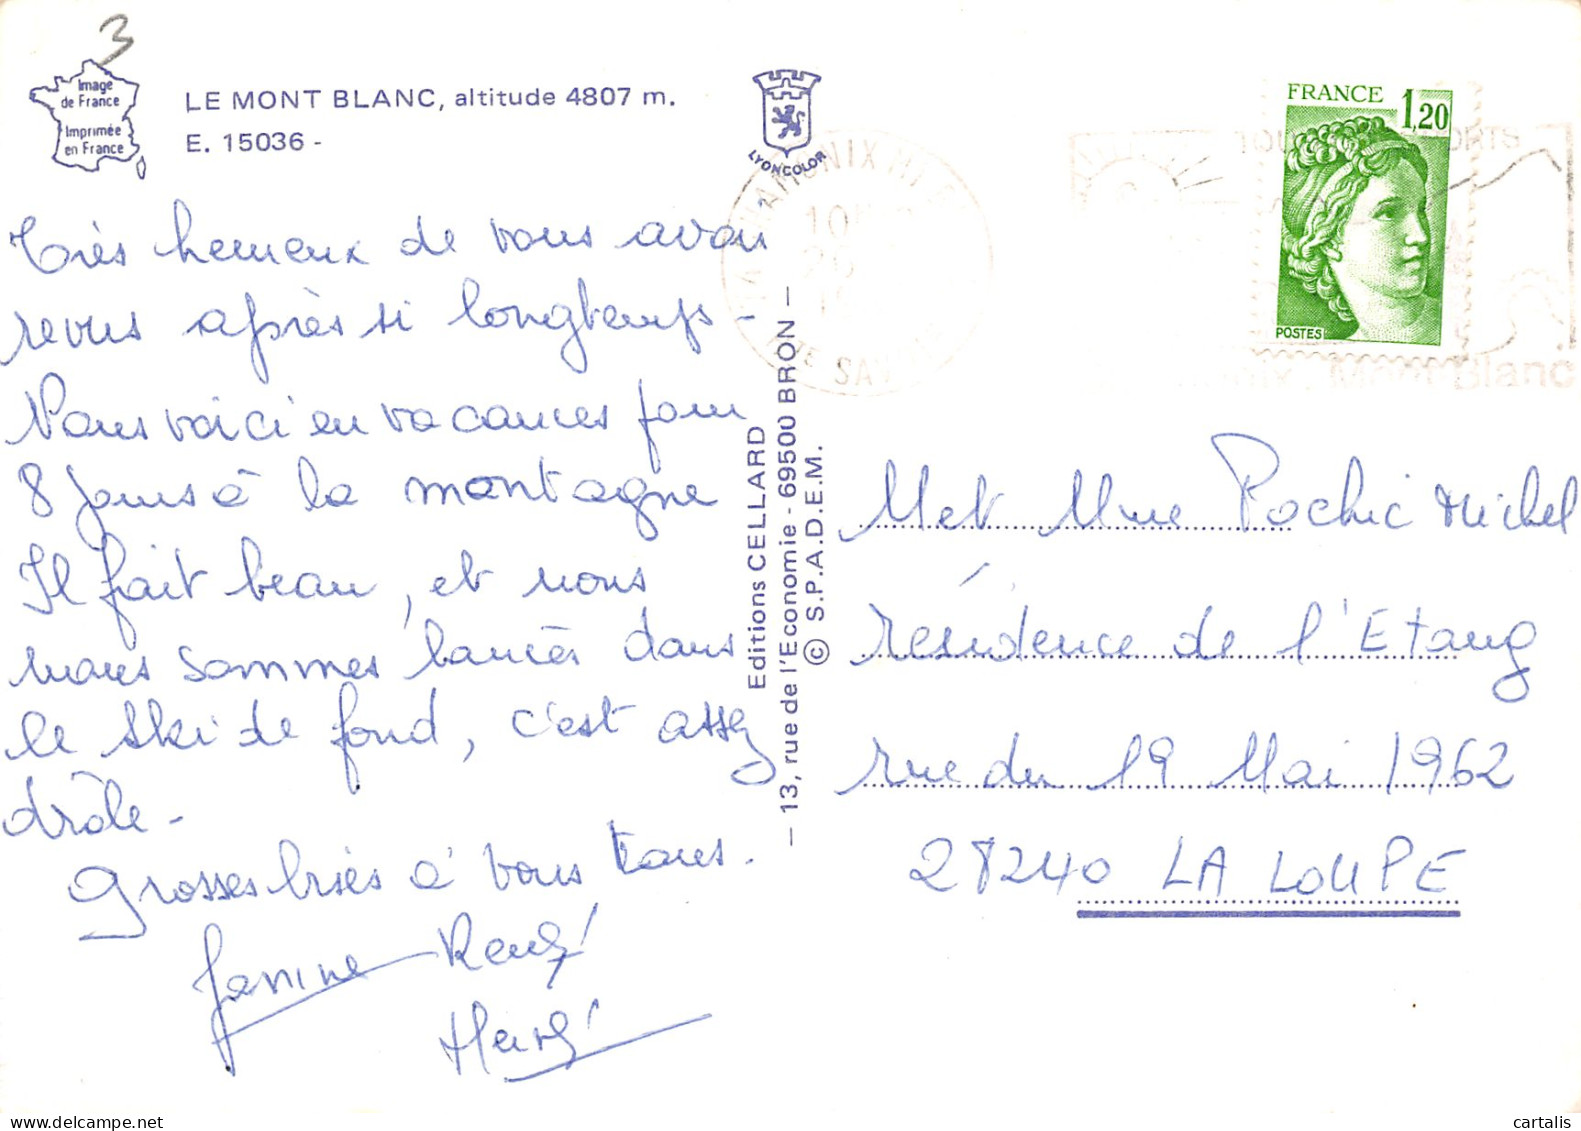 3
Image
de France
Imprimée
en France
LE MONT BLANC, altitude 4807 m.
E. 15036 -
LYONCOLOR
FRANCE 1,20
POSTES
Mont Blanc
Très heureux de vous avoir
revus après si longtemps -
Nous voici en vacances pour
8 jours à la montagne
Il fait beau, et nous
nous sommes lancés dans
le ski de fond, c'est assez
drôle -
Grosses bises à vous tous.
Janine René
Hervé
Editions CELLARD
— 13, rue de l'Economie - 69500 BRON —
© S.P.A.D.E.M.
M et Mme Pochic Michel
résidence de l'Etang
rue du 19 Mai 1962
28240 LA LOUPE
cartalis